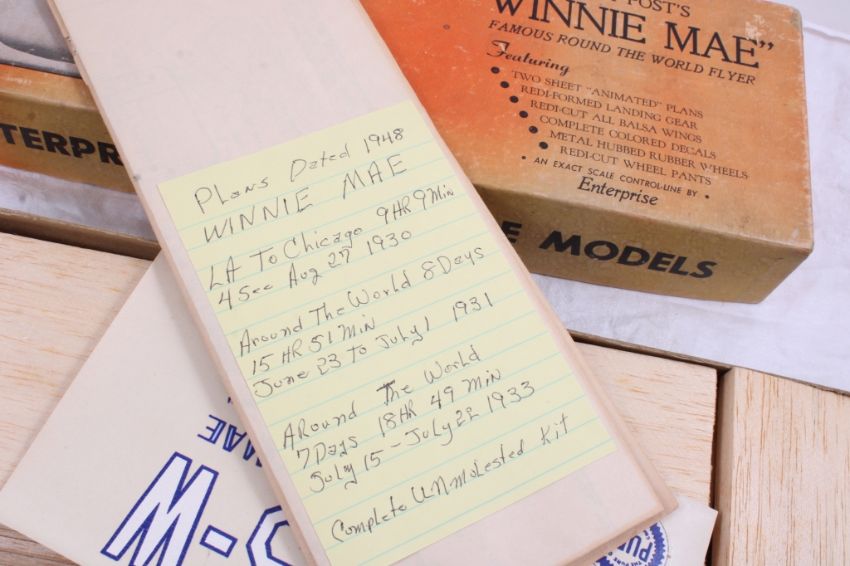 POST'S
WINNIE MAE"
FAMOUS ROUND THE WORLD FLYER
Featuring
• TWO SHEET "ANIMATED" PLANS
• REDI-FORMED LANDING GEAR
• REDI-CUT ALL BALSA WINGS
• COMPLETE COLORED DECALS
• METAL HUBBED RUBBER WHEELS
• REDI-CUT WHEEL PANTS
• AN EXACT SCALE CONTROL-LINE BY •
Enterprise
TERPR
E MODELS
Plans Dated 1948
WINNIE MAE
LA To Chicago 9 HR 9 Min
4 Sec Aug 27 1930
Around The World 8 Days
15 HR 51 Min
June 23 To July 1 1931
Around The World
7 Days 18 HR 49 Min
July 15 - July 22 1933
Complete Unmolested Kit
MAE
W